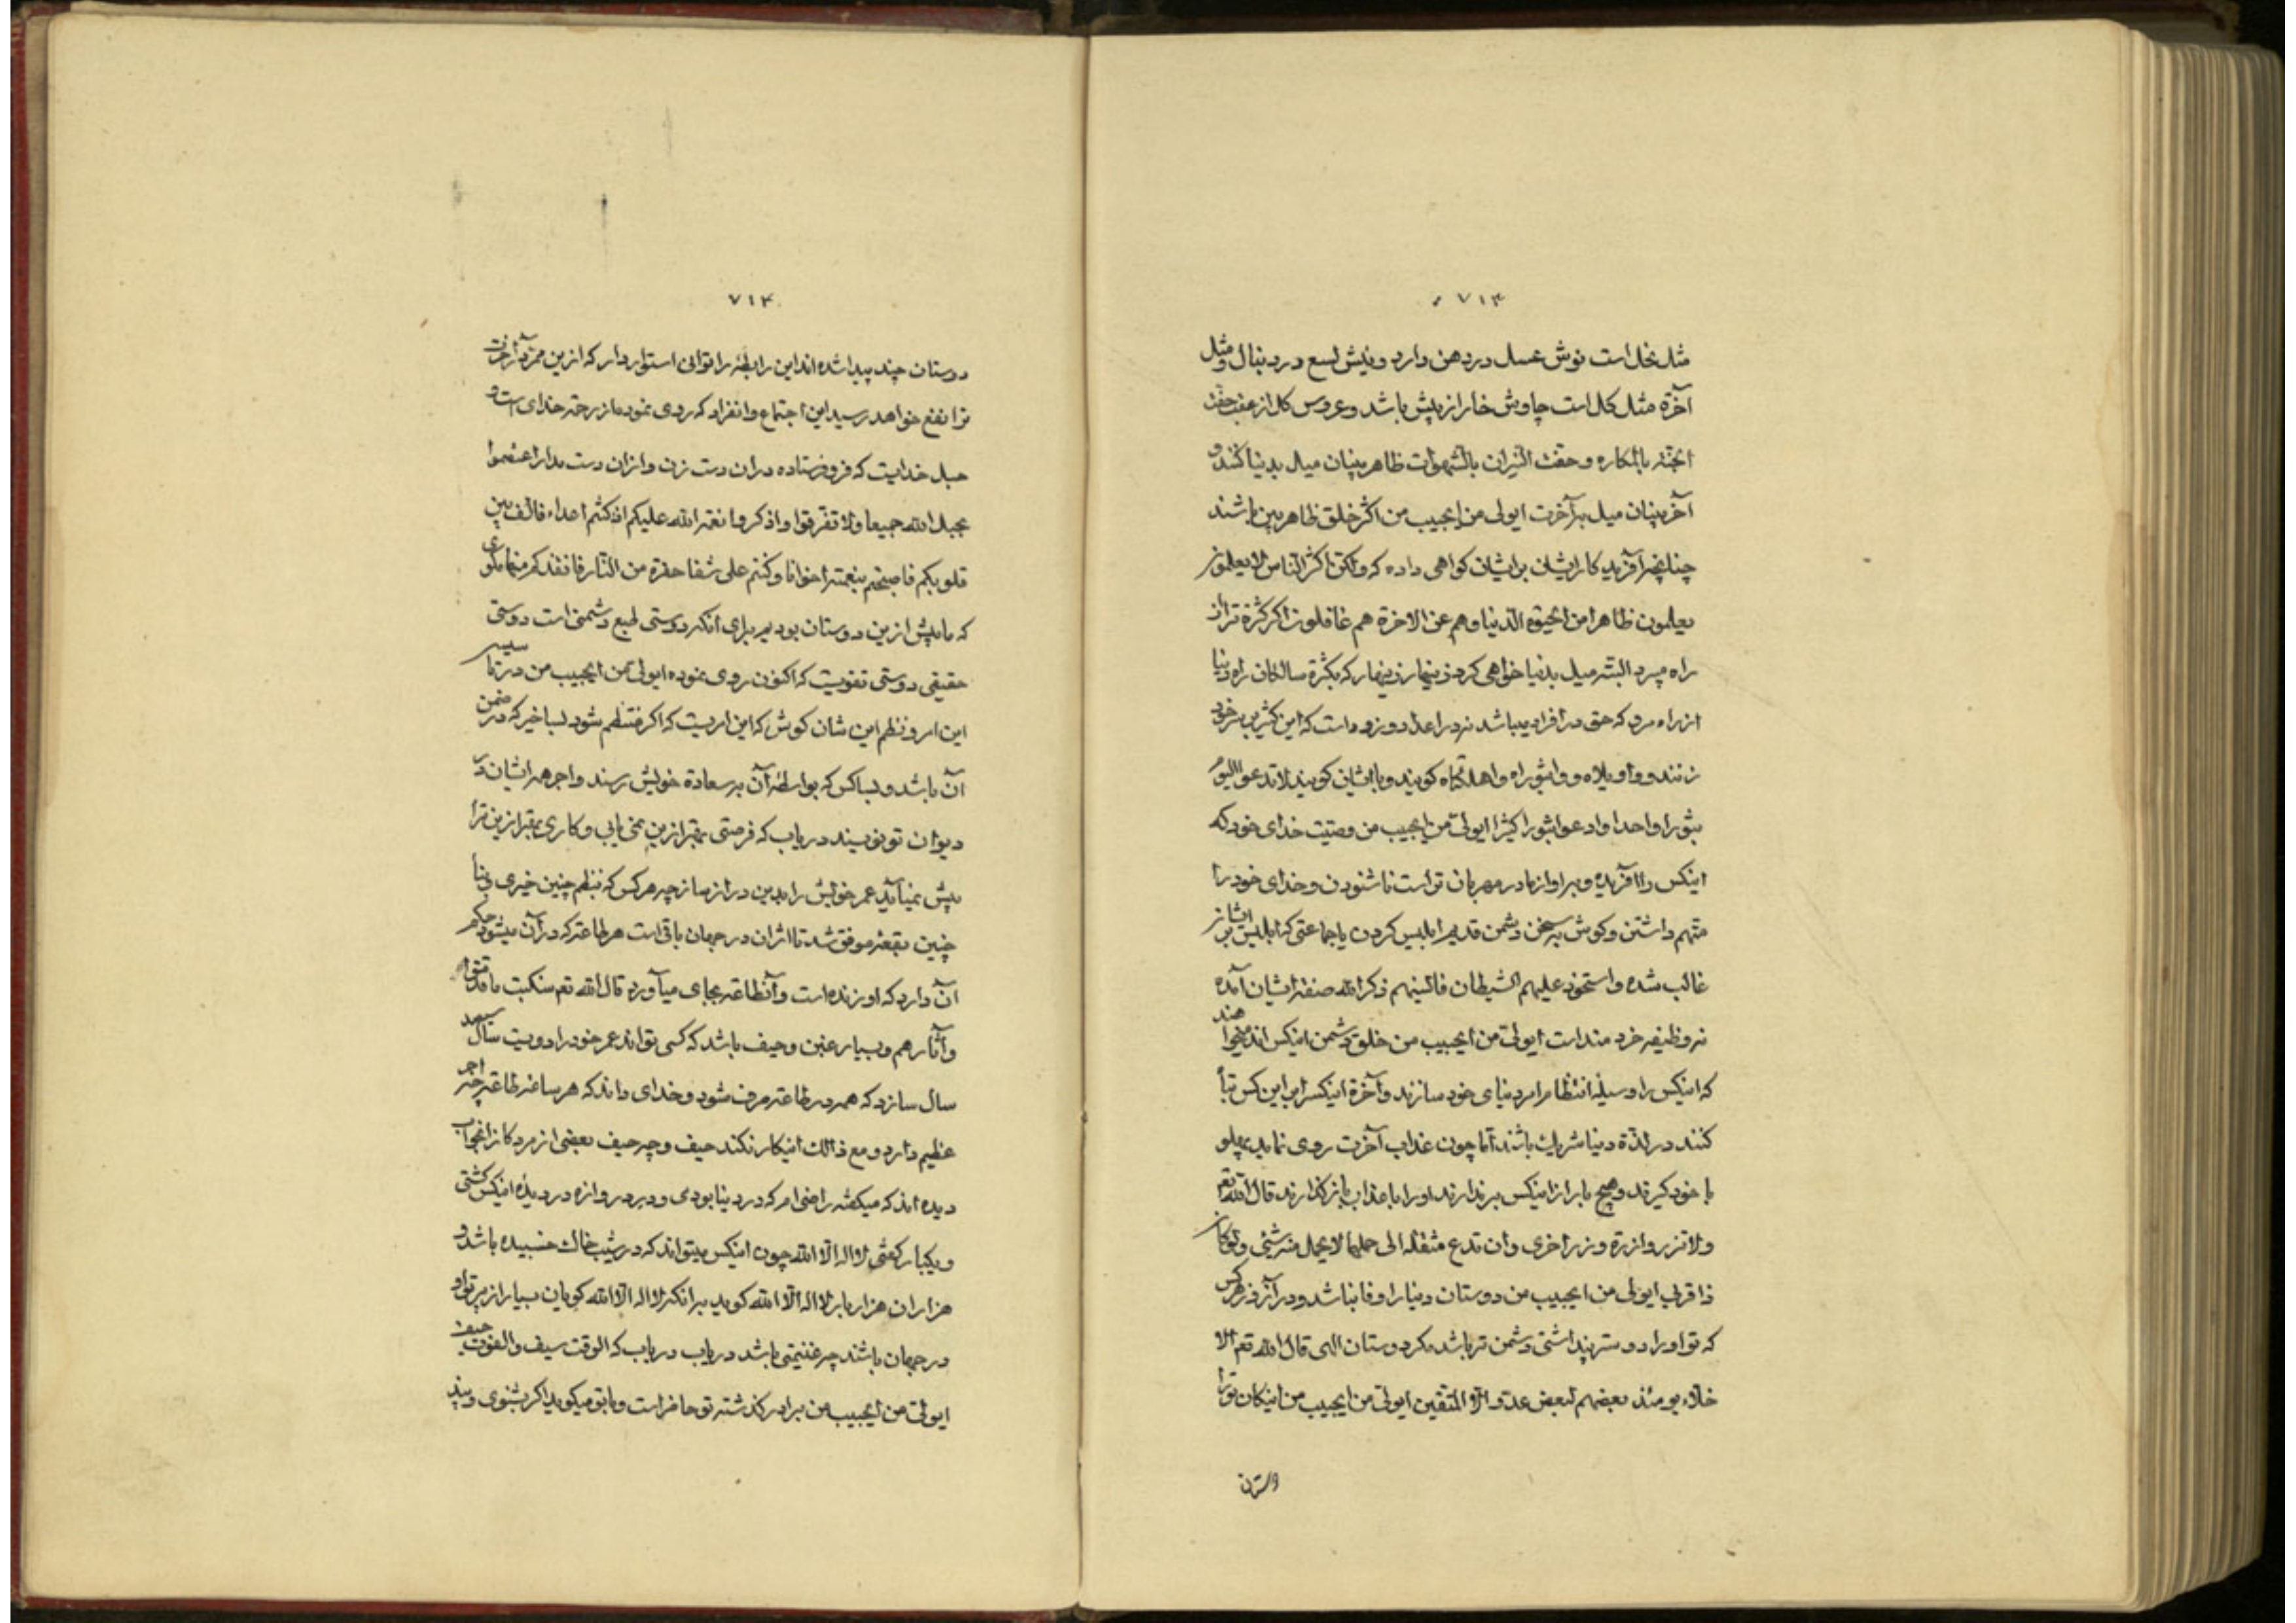 ۷۱۳
مثل نحل است نوش عسل در دهن دارد و نیش لسع در دنبال و مثل
آخرة مثل کل است چاوش خار از پیش باشد و عروس کل از عقب حفت
الجنة بالمکاره و حفت النیران بالشهوات ظاهر بینان میل بدنیا کنند و
آخر بینان میل بآخرت ایولی من ایحبیب من اکثر خلق ظاهر بین باشند
چنانچه آفریدکار ایشان بر ایشان کواهی داده که ولکن اکثر الناس لا یعلمون
یعلمون ظاهرا من الحیوة الدنیا و هم عن الاخرة هم غافلون اکر کثرة ترا از
راه میبرد البته میل بدنیا خواهی کرد زینهار زینهار که بکثرة سالکان راه دنیا
از راه مرو که حق در افراد میباشد نه در اعداد و زود است که این کثیر بر سر خود
زنند و واویلاه و واثبوراه و اهلکاه کویند و با ایشان کویند لا تدعوا الیوم
ثبورا واحدا وادعوا ثبورا کثیرا ایولی من ایحبیب من وصیت خدای خود که
اینکس را آفریده و براو از مادر مهربان تر است ناشنودن و خدای خود را
متهم داشتن و کوش بسخن دشمن قدیم ابلیس کردن یا جماعتی که ابلیس بر ایشان
غالب شده و استحوذ علیهم الشیطان فانسیهم ذکر الله صفة ایشان آمده
نه وظیفه خردمند است ایولی من ایحبیب من خلق دشمن اینکس اند میخواهند
که اینکس را وسیلهٔ انتظام امر دنیای خود سازند و آخرة اینکس را بر این کس تباه
کنند در لذة دنیا شریک باشند اما چون عذاب آخرت روی نماید پهلو
با خود کیرند و هیچ بار از اینکس برندارند او را با عذاب باز کذارند قال الله تعم
ولا تزر وازرة وزر اخری وان تدع مثقلة الی حملها لا یحمل منه شیئی ولو کان
ذا قربی ایولی من ایحبیب من دوستان دنیا را وفا نباشد و در آنروز هر کس
که تو او را دوستر پنداشتی دشمن تر باشد مکر دوستان الهی قال الله تعم الا
خلاء یومئذ بعضهم لبعض عدو الا المتقین ایولی من ایحبیب من نیکان تو را
۷۱۴
دوستان چند پیدا شده اند این رابطه را توانی استوار دار که ازین ممر در آخرت
ترا نفع خواهد رسید این اجتماع و انفراد که روی نموده از رحمة خدای است و
حبل خدایست که فرو فرستاده در ان دست زن و از ان دست مدار اعتصموا
بحبل الله جمیعا ولا تفرقوا واذکروا نعمة الله علیکم اذ کنتم اعداء فالف بین
قلوبکم فاصبحتم بنعمته اخوانا وکنتم علی شفا حفرة من النار فانقذکم منها مکوی
که ما پیش ازین دوستان بودیم برای آنکه دوستی طبع دشمنی است دوستی
حقیقی دوستی تقویست که اکنون روی نموده ایولی من ایحبیب من در تاسیس
این امر و نظم این شان کوش که این امریست که اکر منتظم شود بسا خیر که در ضمن
آن باشد و بسا کس که بواسطهٔ آن بسعادة خویش رسند و اجر همه ایشان در
دیوان تو نویسند دریاب که فرصتی بهتر ازین نمی یابی و کاری بهتر ازین ترا
پیش نمیآید عمر خویش را بدین دراز ساز چه هر کس که بنظم چنین خیری و بنا
چنین بقعهٔ موفق شد تا اثر ان در جهان باقی است هر طاعة که در آن میشود حکم
آن دارد که او زنده است و آنطاعة بجای میآورد قال الله تعم سنکتب ما قدموا
وآثارهم و بسیار غبن و حیف باشد که کسی تواند عمر خود را دویست سال سیصد
سال سازد که همه در طاعة صرف شود و خدای داند که هر ساعة طاعة چه اجر
عظیم دارد و مع ذالک اینکار نکند حیف و چه حیف بعضی از مردکان را بخواب
دیده اند که میکفته راضی ام که در دنیا بودی و در دروازه در دیدهٔ اینکس کشتی
و یکبار کفتی لا اله الا الله چون اینکس میتواند که در شیب خاک خسبیده باشد و
هزاران هزار بار لا اله الا الله کوید برانکه لا اله الا الله کویان بسیار از پرتو او
در جهان باشند چه غنیمتی باشد دریاب دریاب که الوقت سیف والفوت حیف
ایولی من ایحبیب من برادر کذشته تو حاضر است و با تو میکوید اکر بشنوی و پند